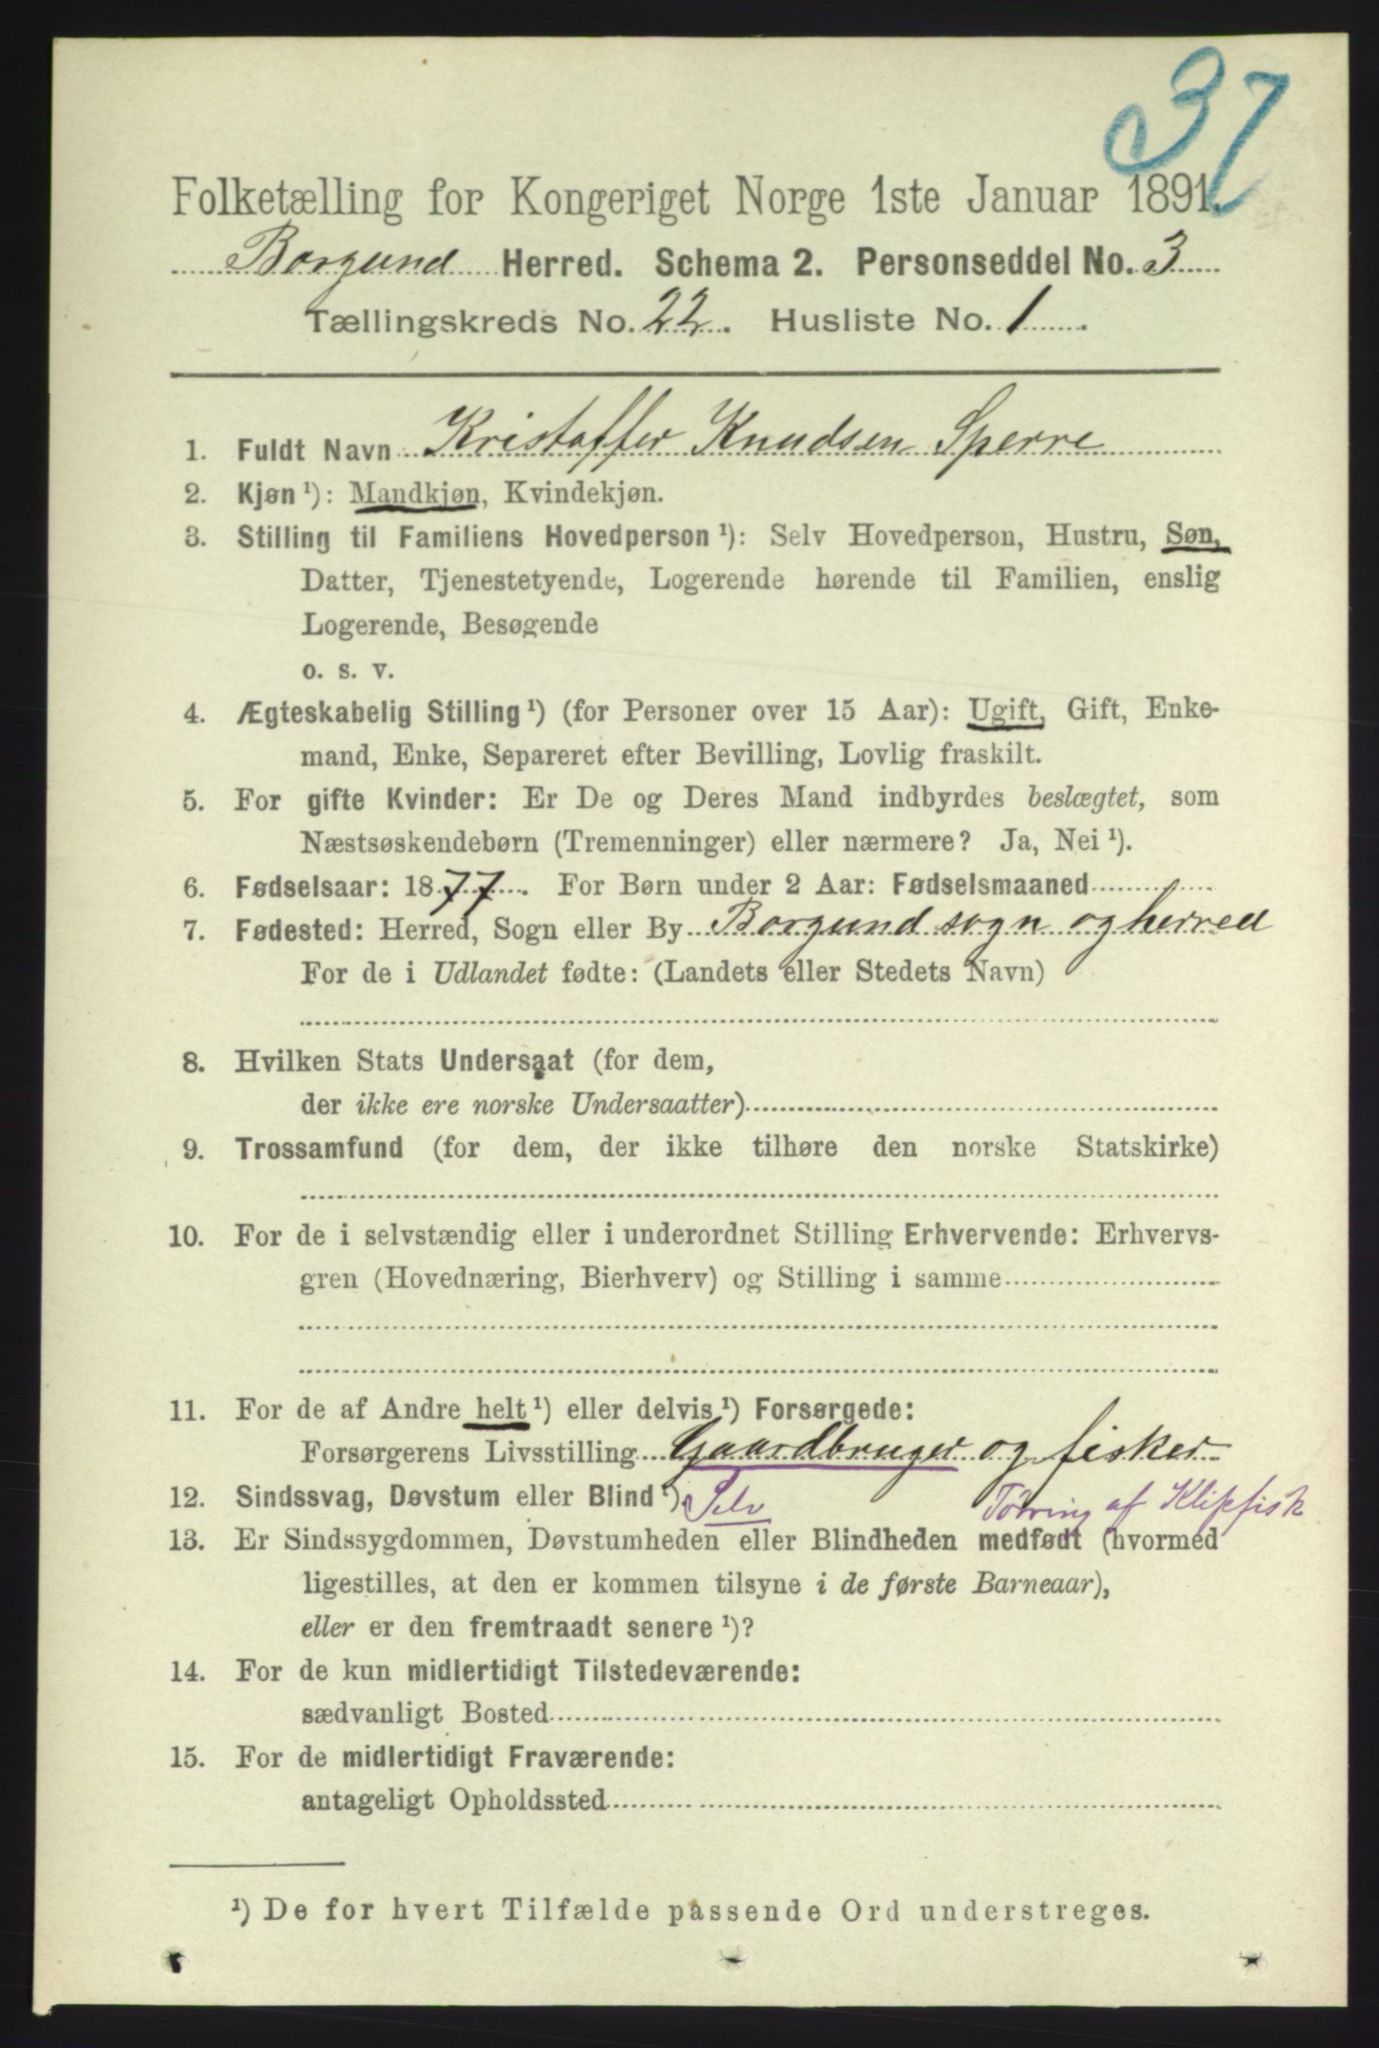 37
Folketælling for Kongeriget Norge 1ste Januar 1891.
Borgund Herred. Schema 2. Personseddel No. 3
Tællingskreds No. 22. Husliste No. 1.
1. Fuldt Navn Kristoffer Knudsen Sperre
2. Kjøn ¹): Mandkjøn, Kvindekjøn.
3. Stilling til Familiens Hovedperson ¹): Selv Hovedperson, Hustru, Søn,
Datter, Tjenestetyende, Logerende hørende til Familien, enslig
Logerende, Besøgende
o. s. v.
4. Ægteskabelig Stilling ¹) (for Personer over 15 Aar): Ugift, Gift, Enke-
mand, Enke, Separeret efter Bevilling, Lovlig fraskilt.
5. For gifte Kvinder: Er De og Deres Mand indbyrdes beslægtet, som
Næstsøskendebørn (Tremenninger) eller nærmere? Ja, Nei ¹).
6. Fødselsaar: 1877. For Børn under 2 Aar: Fødselsmaaned
7. Fødested: Herred, Sogn eller By Borgund sogn og herred
For de i Udlandet fødte: (Landets eller Stedets Navn)
8. Hvilken Stats Undersaat (for dem,
der ikke ere norske Undersaatter)
9. Trossamfund (for dem, der ikke tilhøre den norske Statskirke)
10. For de i selvstændig eller i underordnet Stilling Erhvervende: Erhvervs-
gren (Hovednæring, Bierhverv) og Stilling i samme
11. For de af Andre helt ¹) eller delvis ¹) Forsørgede:
Forsørgerens Livsstilling Gaardbruger og fisker
12. Sindssvag, Døvstum eller Blind ¹). Selv Törring af Klipfisk
13. Er Sindssygdommen, Døvstumheden eller Blindheden medfødt (hvormed
ligestilles, at den er kommen tilsyne i de første Barneaar),
eller er den fremtraadt senere ¹)?
14. For de kun midlertidigt Tilstedeværende:
sædvanligt Bosted
15. For de midlertidigt Fraværende:
antageligt Opholdssted
¹) De for hvert Tilfælde passende Ord understreges.